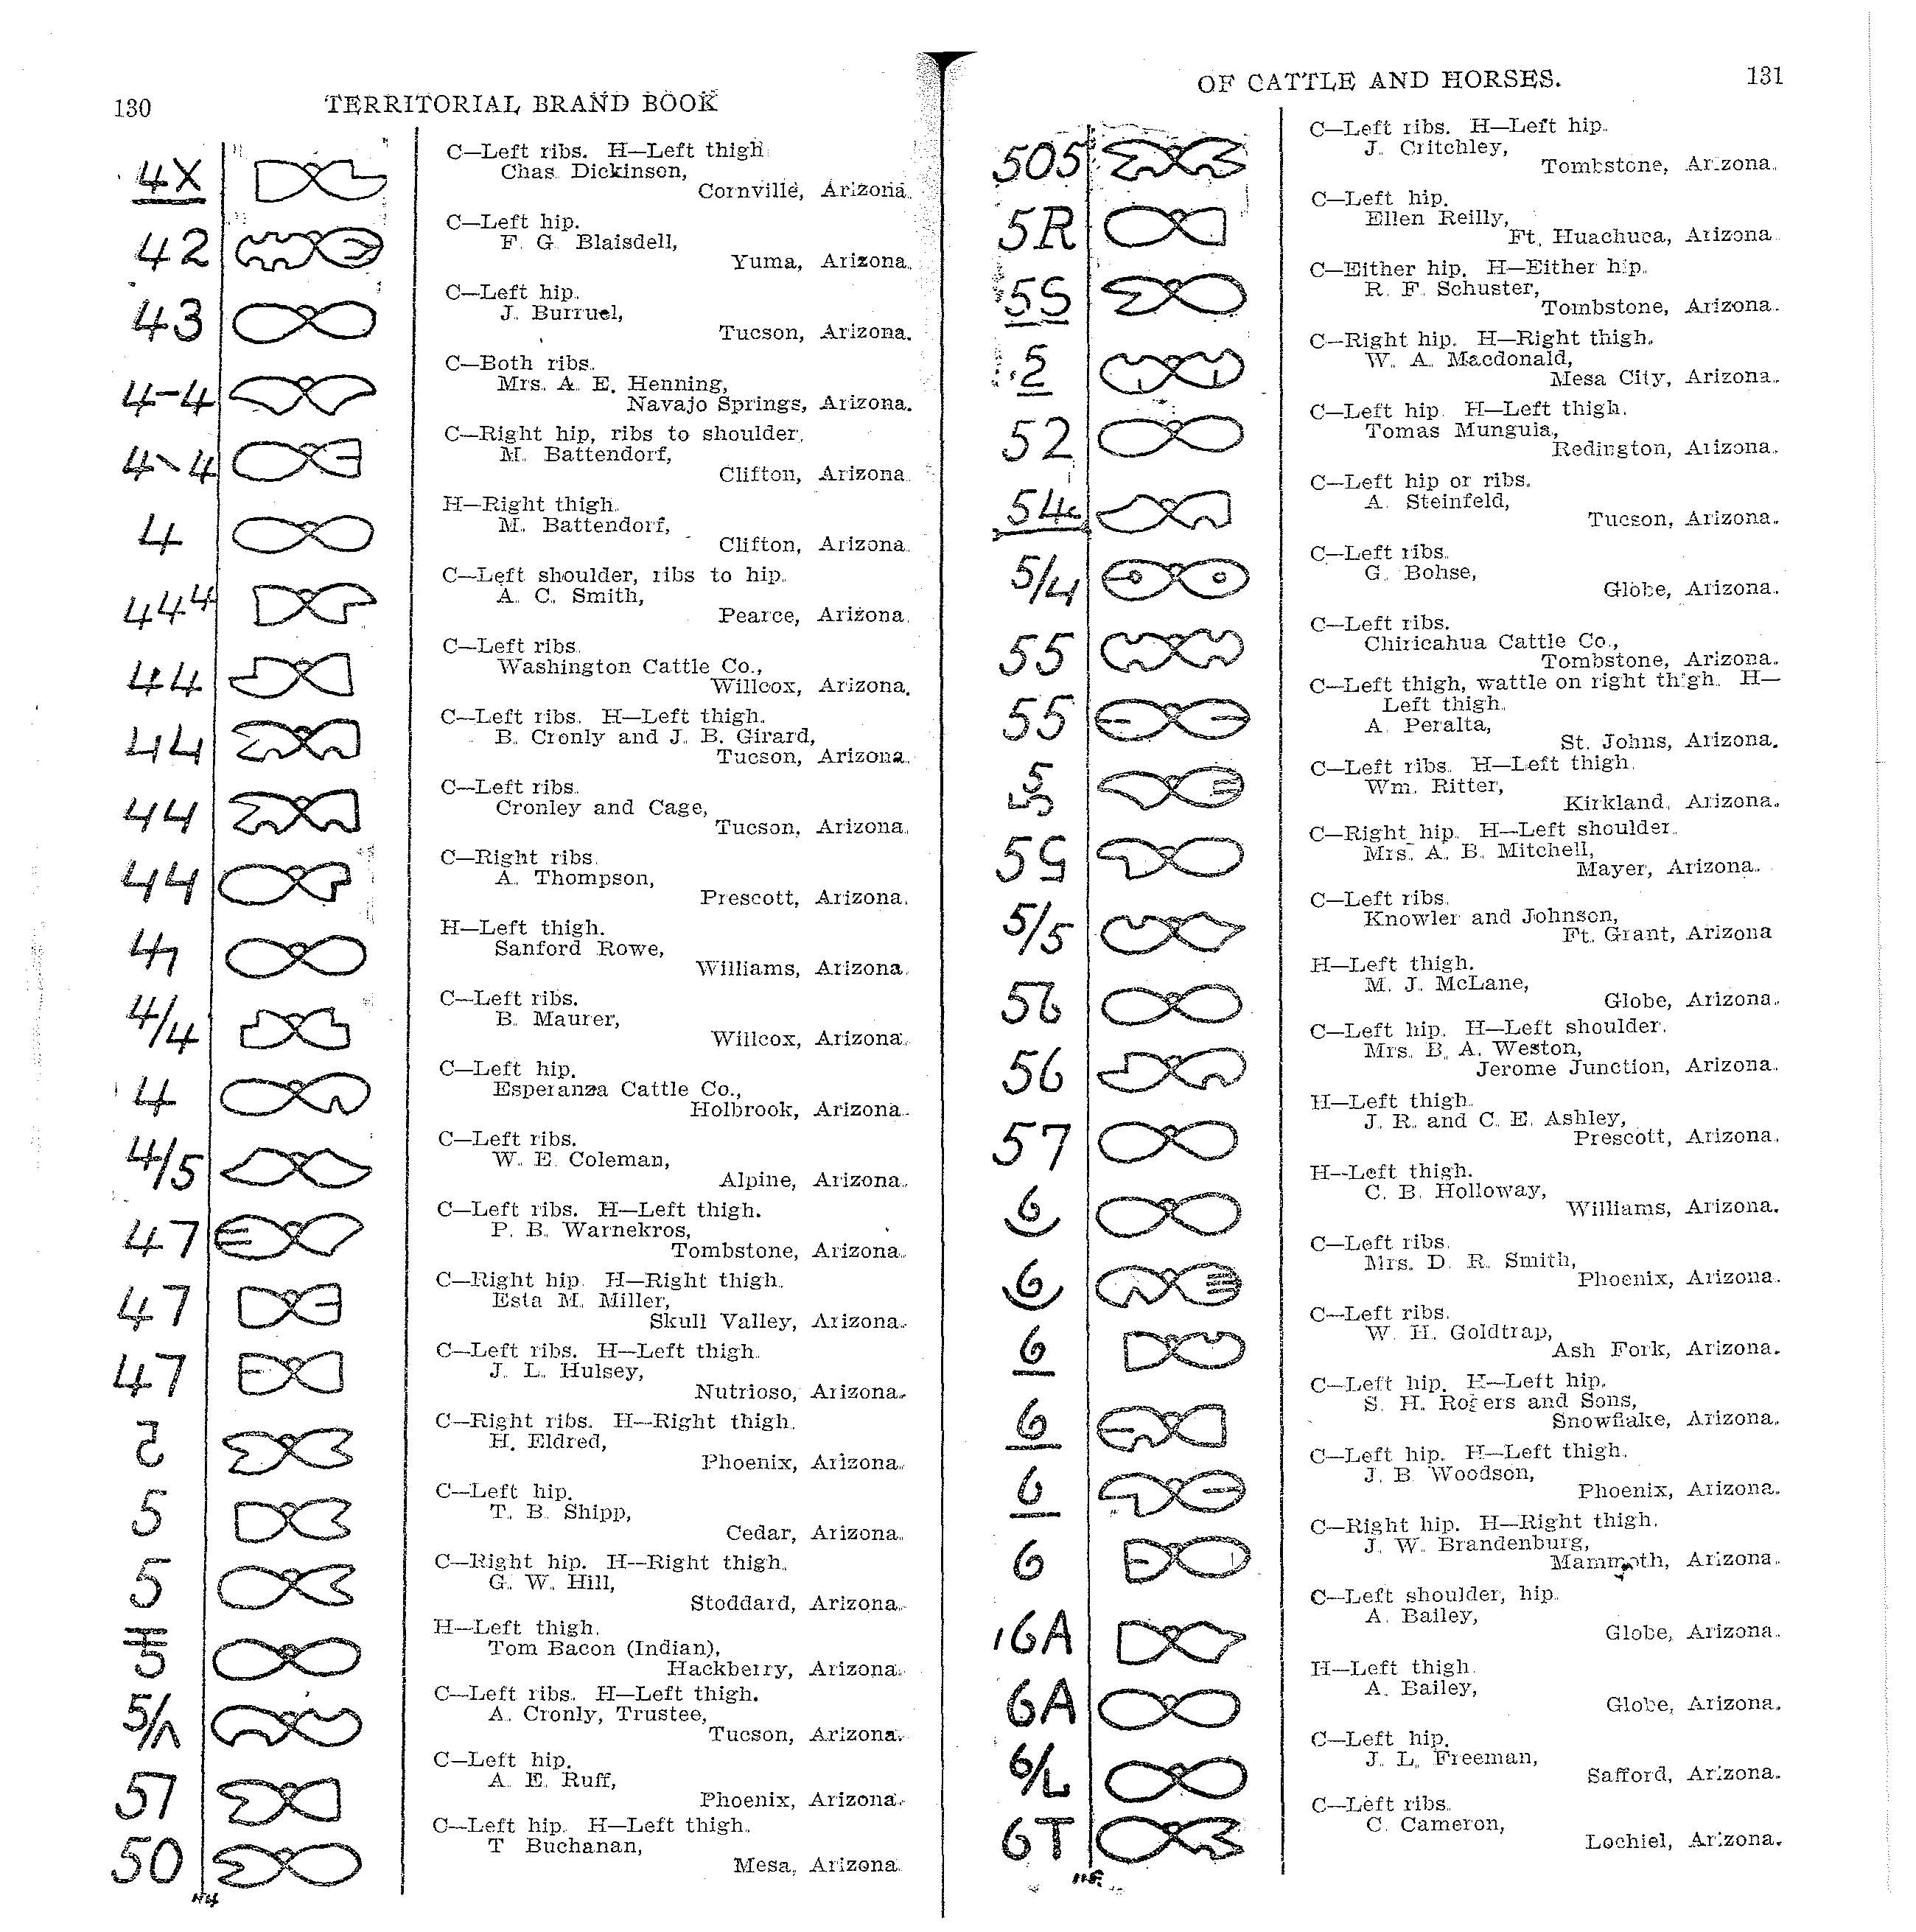 130 TERRITORIAL BRAND BOOK
4X
C—Left ribs. H—Left thigh
Chas. Dickinson,
Cornville, Arizona.
42
C—Left hip.
F. G. Blaisdell,
Yuma, Arizona.
43
C—Left hip.
J. Burruel,
Tucson, Arizona.
4-4
C—Both ribs.
Mrs. A. E. Henning,
Navajo Springs, Arizona.
4\4
C—Right hip, ribs to shoulder.
M. Battendorf,
Clifton, Arizona.
4
H—Right thigh.
M. Battendorf,
Clifton, Arizona.
444
C—Left shoulder, ribs to hip.
A. C. Smith,
Pearce, Arizona.
44
C—Left ribs.
Washington Cattle Co.,
Willcox, Arizona.
44
C—Left ribs. H—Left thigh.
B. Cronly and J. B. Girard,
Tucson, Arizona.
44
C—Left ribs.
Cronley and Cage,
Tucson, Arizona.
44
C—Right ribs.
A. Thompson,
Prescott, Arizona.
H—Left thigh.
Sanford Rowe,
Williams, Arizona.
4/4
C—Left ribs.
B. Maurer,
Willcox, Arizona.
4
C—Left hip.
Esperanza Cattle Co.,
Holbrook, Arizona.
4/5
C—Left ribs.
W. E. Coleman,
Alpine, Arizona.
47
C—Left ribs. H—Left thigh.
P. B. Warnekros,
Tombstone, Arizona.
47
C—Right hip. H—Right thigh.
Esta M. Miller,
Skull Valley, Arizona.
47
C—Left ribs. H—Left thigh.
J. L. Hulsey,
Nutrioso, Arizona.
C—Right ribs. H—Right thigh.
H. Eldred,
Phoenix, Arizona.
5
C—Left hip.
T. B. Shipp,
Cedar, Arizona.
5
C—Right hip. H—Right thigh.
G. W. Hill,
Stoddard, Arizona.
H—Left thigh.
Tom Bacon (Indian),
Hackberry, Arizona.
C—Left ribs. H—Left thigh.
A. Cronly, Trustee,
Tucson, Arizona.
57
C—Left hip.
A. E. Ruff,
Phoenix, Arizona.
50
C—Left hip. H—Left thigh.
T Buchanan,
Mesa, Arizona.
114
OF CATTLE AND HORSES. 131
505
C—Left ribs. H—Left hip.
J. Critchley,
Tombstone, Arizona.
5R
C—Left hip.
Ellen Reilly,
Ft. Huachuca, Arizona
5S
C—Either hip. H—Either hip.
R. F. Schuster,
Tombstone, Arizona.
C—Right hip. H—Right thigh.
W. A. Macdonald,
Mesa City, Arizona.
52
C—Left hip. H—Left thigh.
Tomas Munguia,
Redington, Arizona.
54
C—Left hip or ribs.
A. Steinfeld,
Tucson, Arizona.
5/4
C—Left ribs.
G. Bohse,
Globe, Arizona.
55
C—Left ribs.
Chiricahua Cattle Co.,
Tombstone, Arizona.
55
C—Left thigh, wattle on right thigh. H—
Left thigh.
A. Peralta,
St. Johns, Arizona.
5
C—Left ribs. H—Left thigh.
Wm. Ritter,
Kirkland, Arizona.
C—Right hip. H—Left shoulder.
Mrs. A. B. Mitchell,
Mayer, Arizona.
5/5
C—Left ribs.
Knowler and Johnson,
Ft. Grant, Arizona
H—Left thigh.
M. J. McLane,
Globe, Arizona.
56
C—Left hip. H—Left shoulder.
Mrs. B. A. Weston,
Jerome Junction, Arizona.
57
H—Left thigh.
J. R. and C. E. Ashley,
Prescott, Arizona.
6
H—Left thigh.
C. B. Holloway,
Williams, Arizona.
6
C—Left ribs.
Mrs. D. R. Smith,
Phoenix, Arizona.
6
C—Left ribs.
W. H. Goldtrap,
Ash Fork, Arizona.
6
C—Left hip. H—Left hip.
S. H. Rogers and Sons,
Snowflake, Arizona.
6
C—Left hip. H—Left thigh.
J. B. Woodson,
Phoenix, Arizona.
6
C—Right hip. H—Right thigh.
J. W. Brandenburg,
Mammoth, Arizona.
6A
C—Left shoulder, hip.
A. Bailey,
Globe, Arizona.
6A
H—Left thigh.
A. Bailey,
Globe, Arizona.
6/L
C—Left hip.
J. L. Freeman,
Safford, Arizona.
6T
C—Left ribs.
C. Cameron,
Lochiel, Arizona.
115